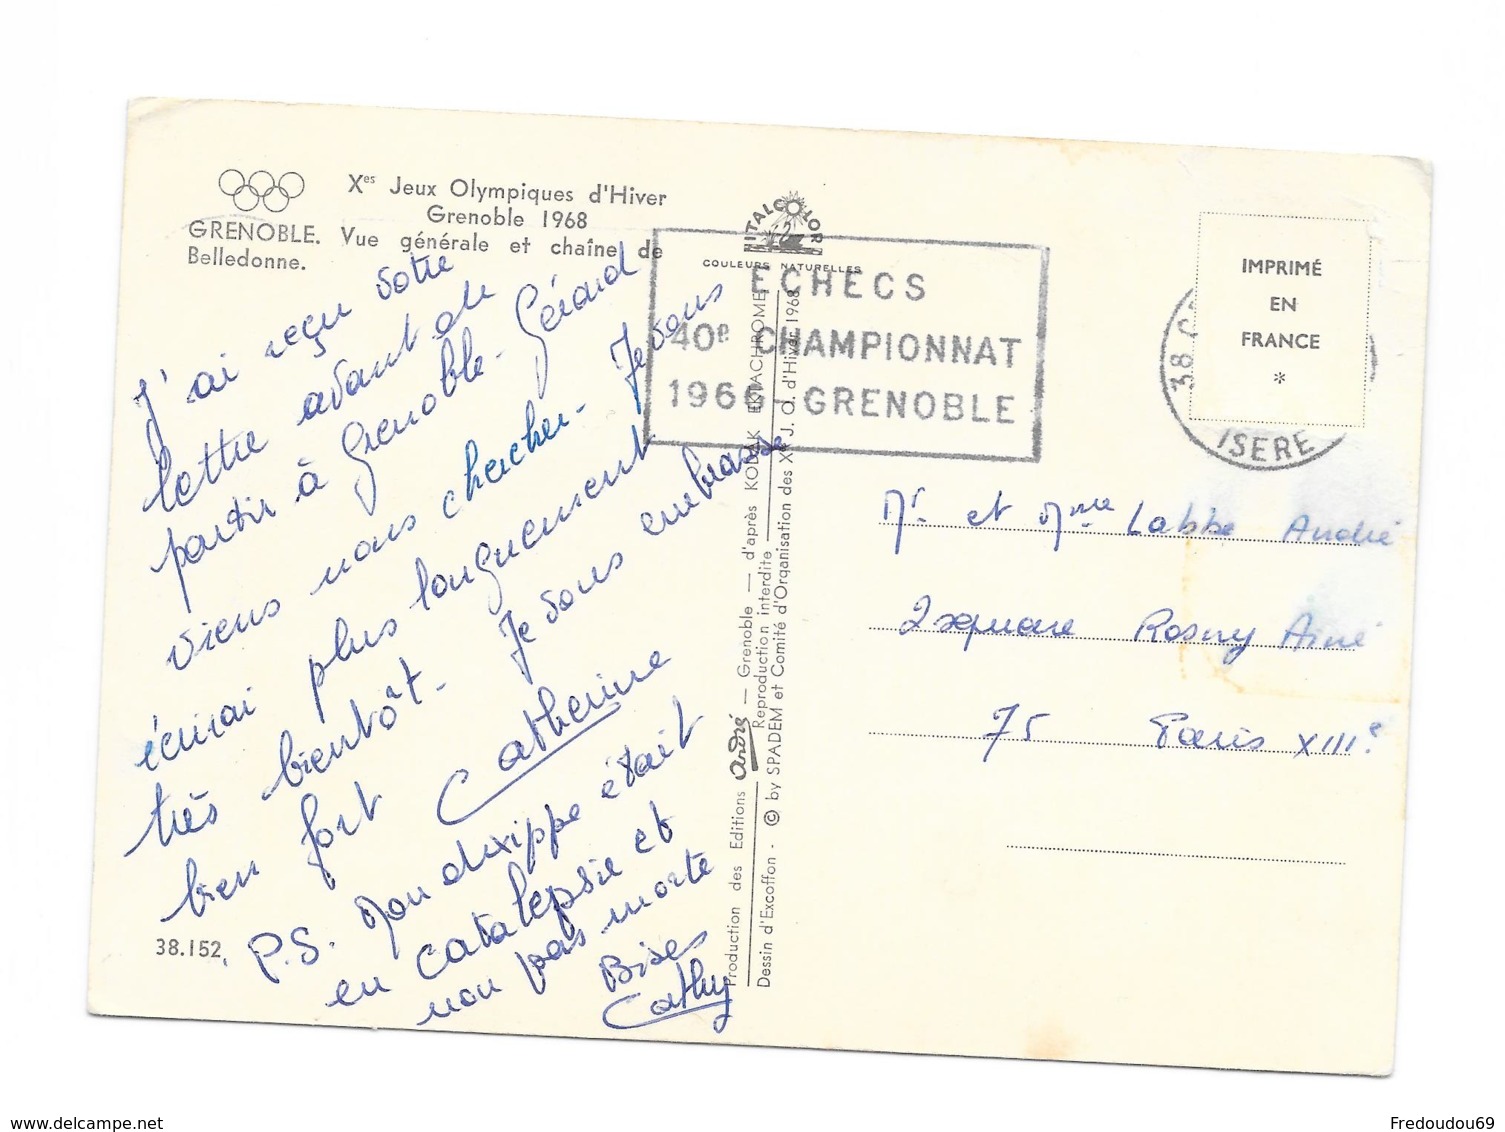 Xes Jeux Olympiques d'Hiver
Grenoble 1968
GRENOBLE. Vue générale et chaîne de
Belledonne.
J'ai reçu votre
lettre avant de
partir à Grenoble. Gérard
viens nous chercher. Je vous
écrirai plus longuement
très bientôt. Je vous embrasse
bien fort Catherine
P.S. Mon dixippe était
en catalepsie et
non pas morte
Bises
Cathy
38.152
ITALCOLOR
COULEURS NATURELLES
ECHECS
40e CHAMPIONNAT
1966 - GRENOBLE
Production des Editions André — Grenoble — d'après KODAK EKTACHROME
Reproduction interdite
Dessin d'Excoffon - © by SPADEM et Comité d'Organisation des Xes J. O. d'Hiver 1968
IMPRIMÉ
EN
FRANCE
*
38
ISERE
Mr et Mme Labbe André
2 square Rosny Ainé
75 Paris XIIIe
delcampe.net
Fredoudou69